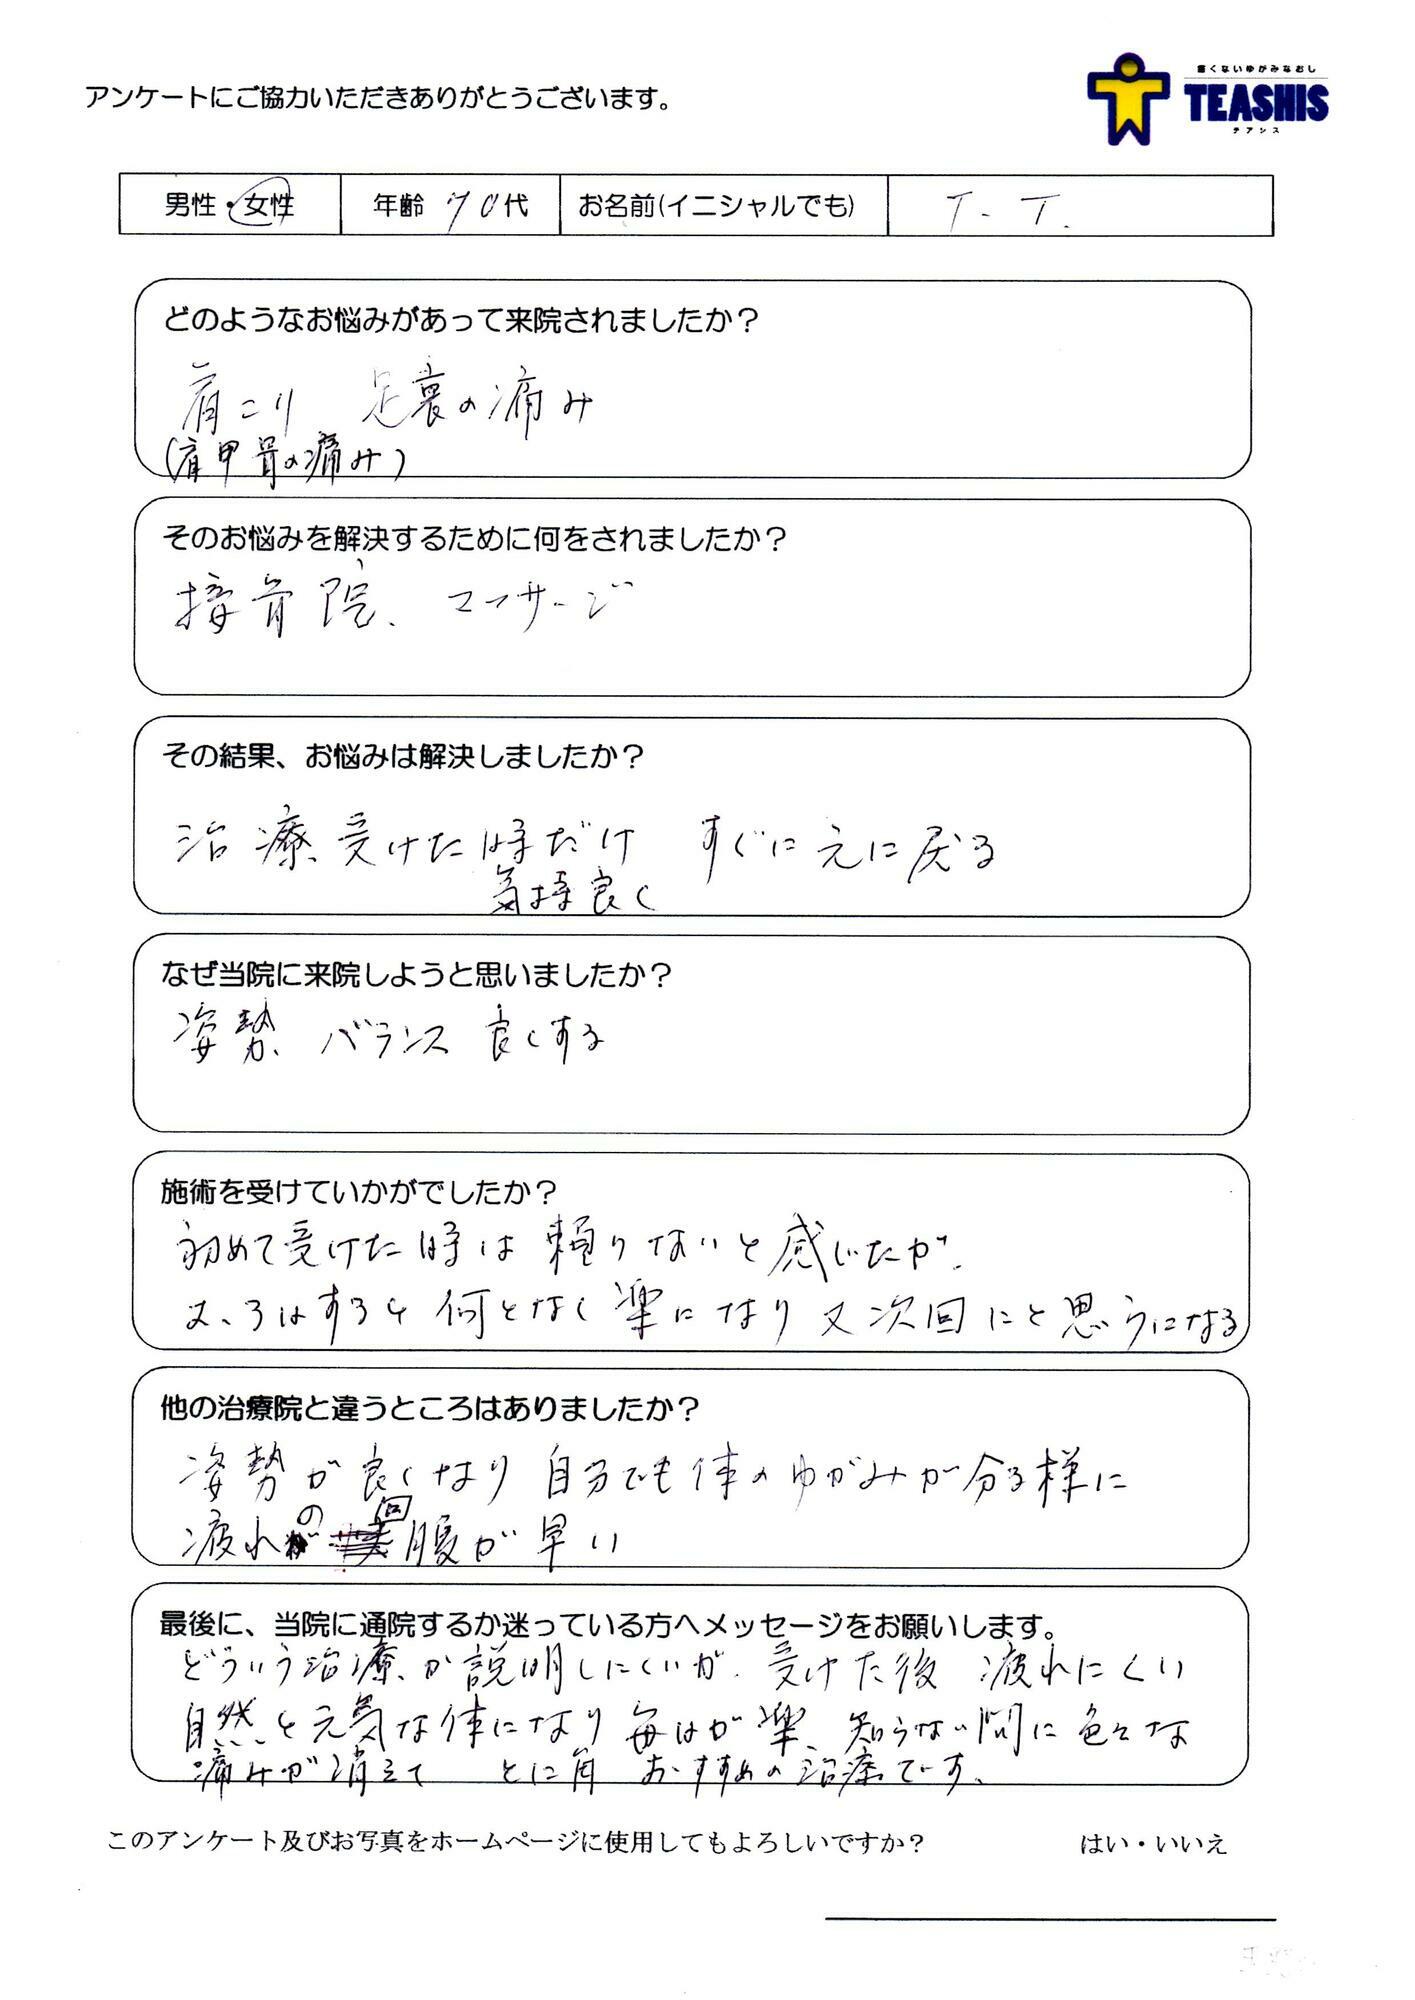 アンケートにご協力いただきありがとうございます。
痛くないゆがみなおし
TEASHIS
テアシス
男性・女性 年齢 70代 お名前(イニシャルでも) T. T.
どのようなお悩みがあって来院されましたか？
肩こり 足裏の痛み
(肩甲骨の痛み)
そのお悩みを解決するために何をされましたか？
接骨院、マッサージ
その結果、お悩みは解決しましたか？
治療受けた時だけ すぐに元に戻る
気持良く
なぜ当院に来院しようと思いましたか？
姿勢 バランス 良くする
施術を受けていかがでしたか？
初めて受けた時は頼りないと感じたが、
何となく楽になり又次回にと思うになる
他の治療院と違うところはありましたか？
姿勢が良くなり自分でも体のゆがみが分る様に
疲れの回腹が早い
最後に、当院に通院するか迷っている方へメッセージをお願いします。
どういう治療か説明しにくいが、受けた後 疲れにくい
自然と元気な体になり 楽、知らない間に色々な
痛みが消えて とに角 おすすめの治療です。
このアンケート及びお写真をホームページに使用してもよろしいですか？ はい・いいえ